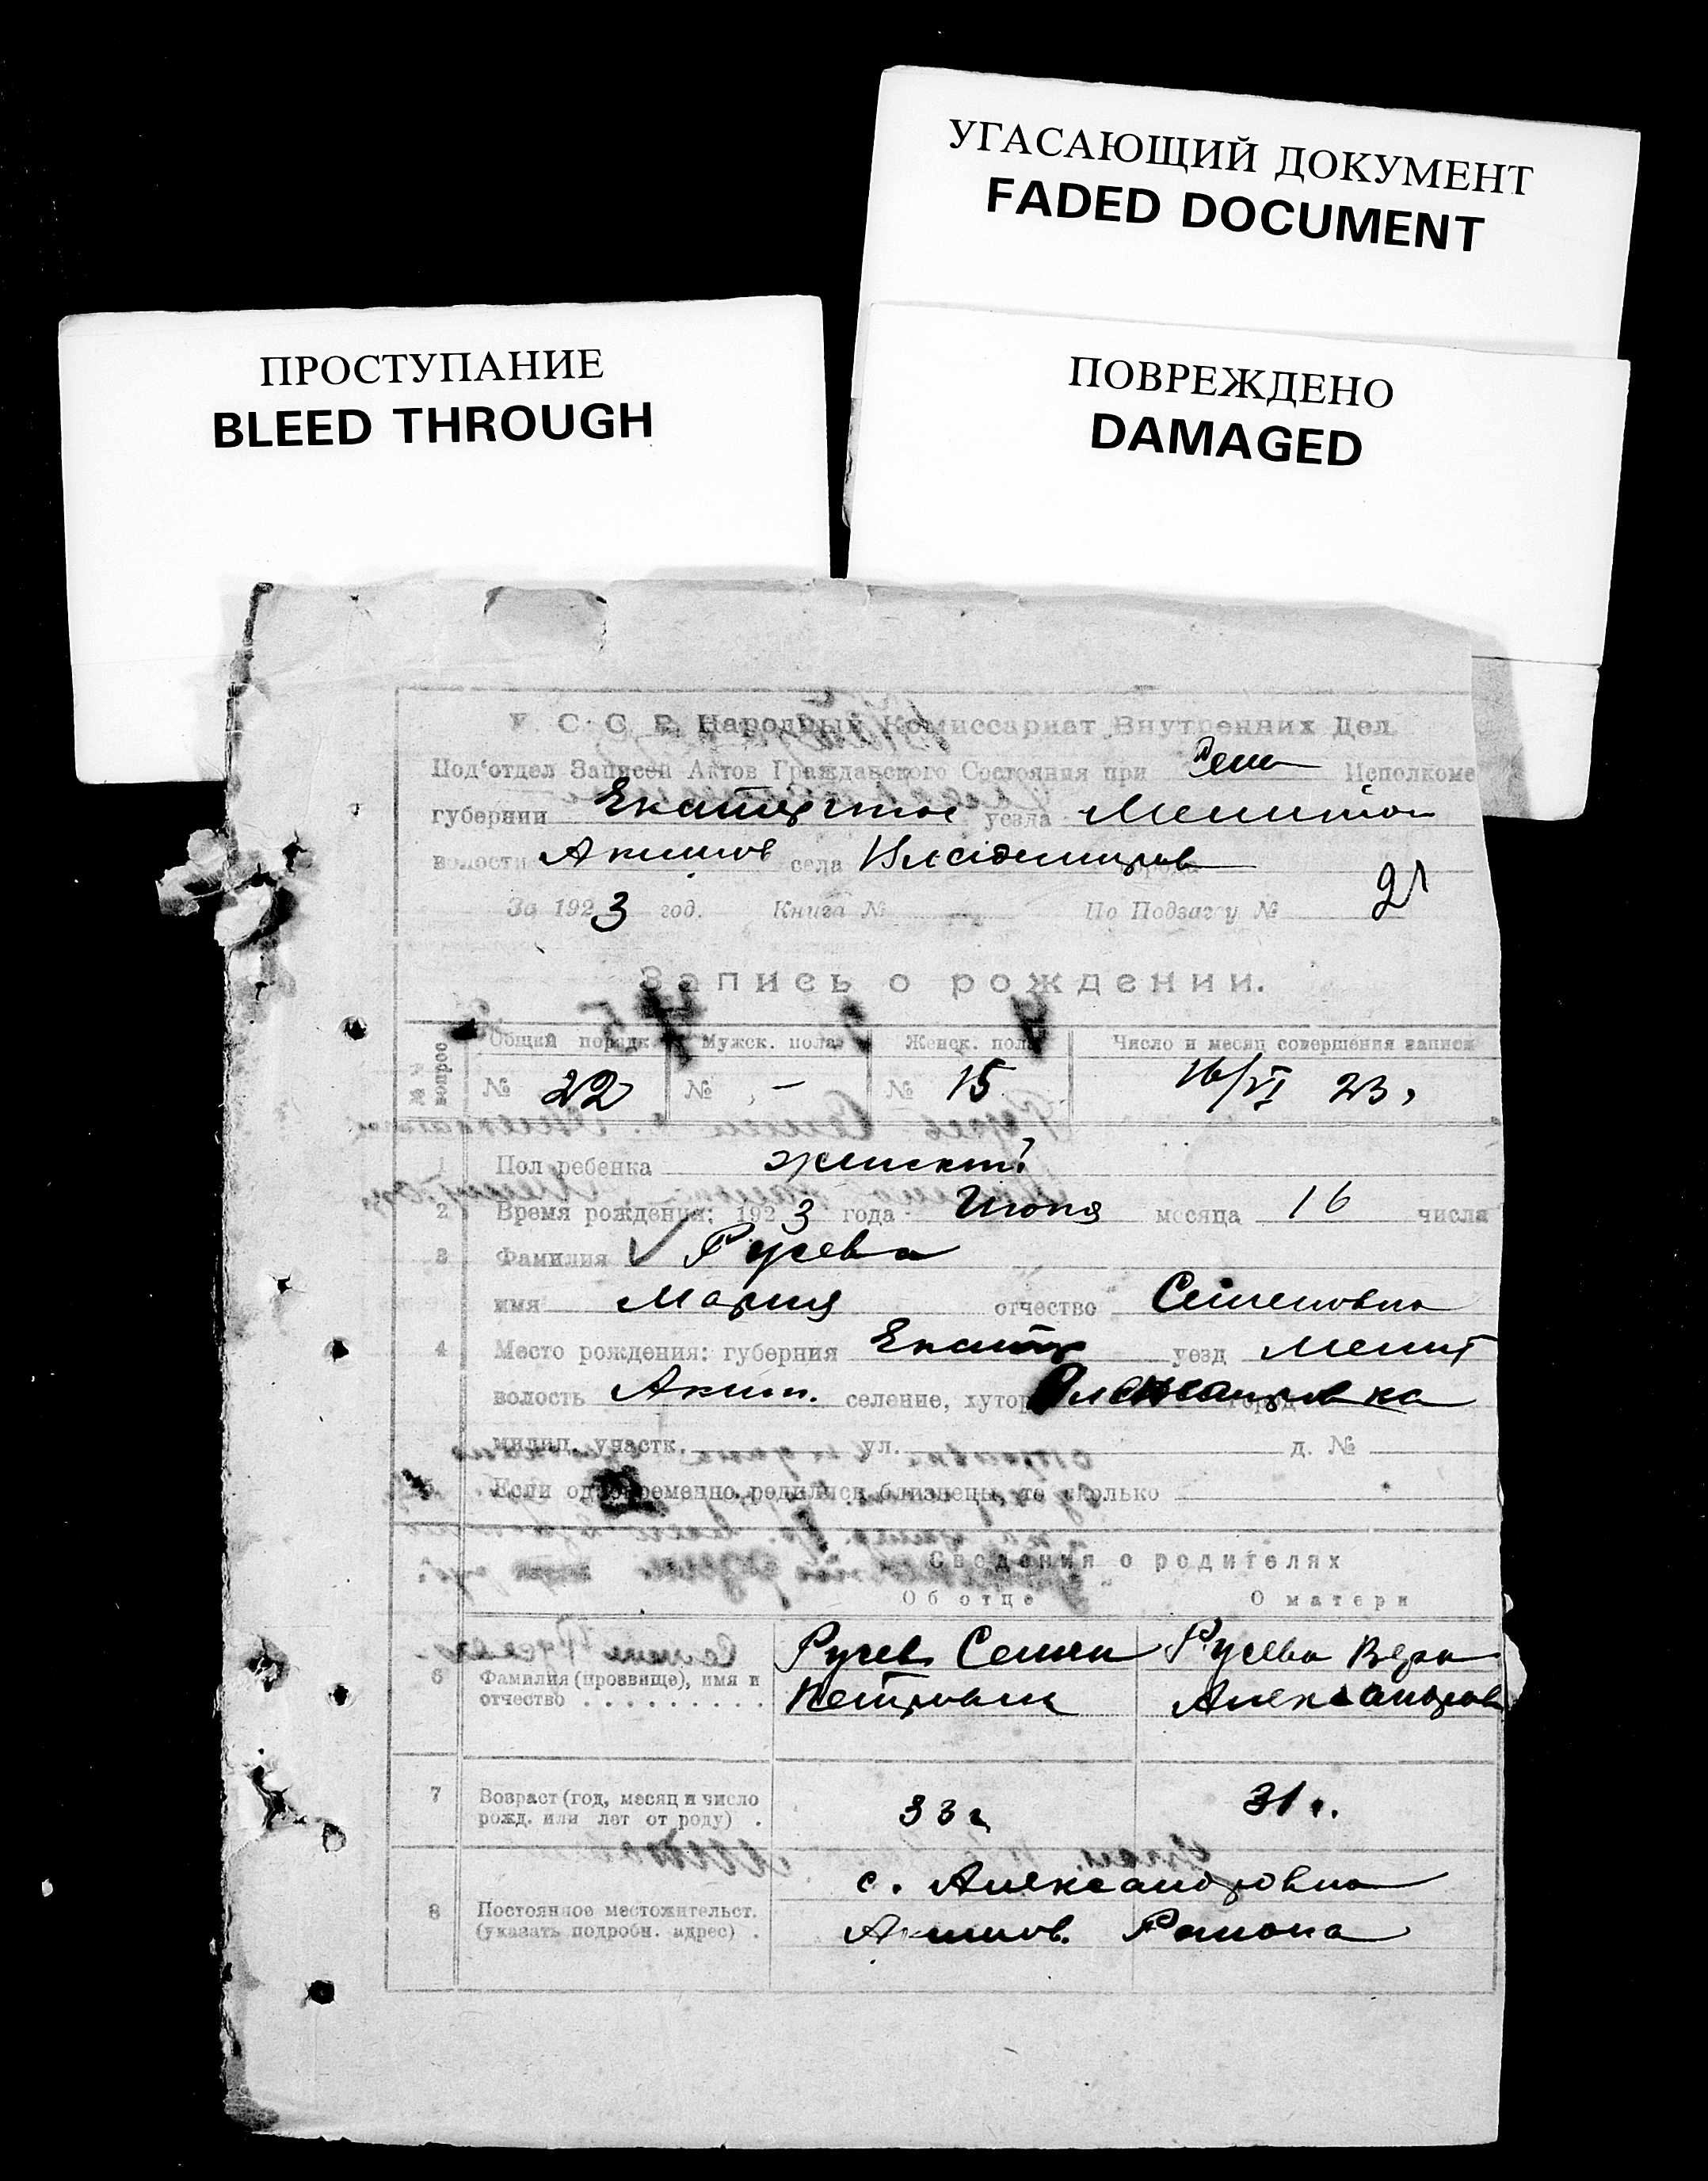 УГАСАЮЩИЙ ДОКУМЕНТ
FADED DOCUMENT
ПРОСТУПАНИЕ
BLEED THROUGH
ПОВРЕЖДЕНО
DAMAGED
У. С. С. Р. Народный Комиссариат Внутренних Дел
Под'отдел Записей Актов Гражданского Состояния при Исполкоме
губернии уезда Мелитоп
волости Акимов села Владимиров
За 1923 год. Книга № По Подзагсу № 21
Запись о рождении.
№№ вопрос
Общий порядк. Мужск. пола Женск. пола Число и месяц совершения записи
№ 22 № - № 15 16/VI 23.
1 Пол ребенка женский
2 Время рождения: 1923 года Июня месяца 16 числа
3 Фамилия Русева
имя Мария отчество Семеновна
4 Место рождения: губерния Екатер уезд Мелит
волость Аким. селение, хутор Александровка
милиц. участк. ул. д. №
Если одновременно родились близнецы, то сколько
Сведения о родителях
Об отце О матери
6 Фамилия (прозвище), имя и отчество . . . . . . . . .
Русев Семен Петрович
Русева Вера Александров
7 Возраст (год, месяц и число рожд. или лет от роду) .
33 г. 31 г.
8 Постоянное местожительст. (указать подробн. адрес) .
с. Александровка
Акимов. Района